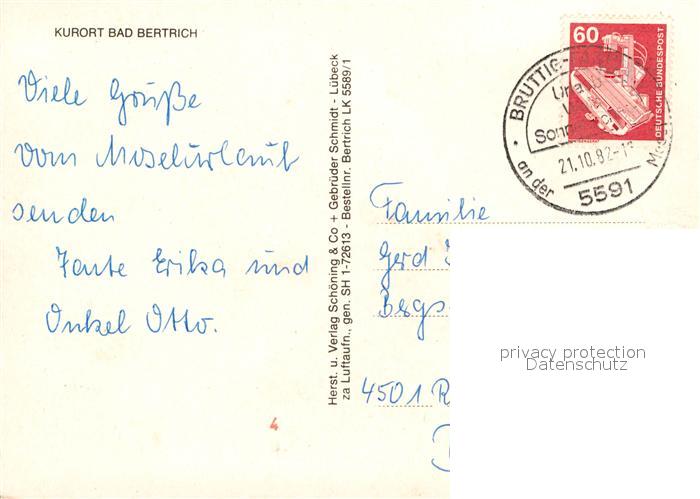 KURORT BAD BERTRICH
Viele Grüße
vom Moselurlaub
senden
Tante Erika und
Onkel Otto.
4
Herst. u. Verlag Schöning & Co + Gebrüder Schmidt - Lübeck
za Luftaufn., gen. SH 1-72613 - Bestellnr. Bertrich LK 5589/1
60
DEUTSCHE BUNDESPOST
BRUTTIG-
an der
21.10.82-1
5591
Familie
Gerd
4501
privacy protection
Datenschutz